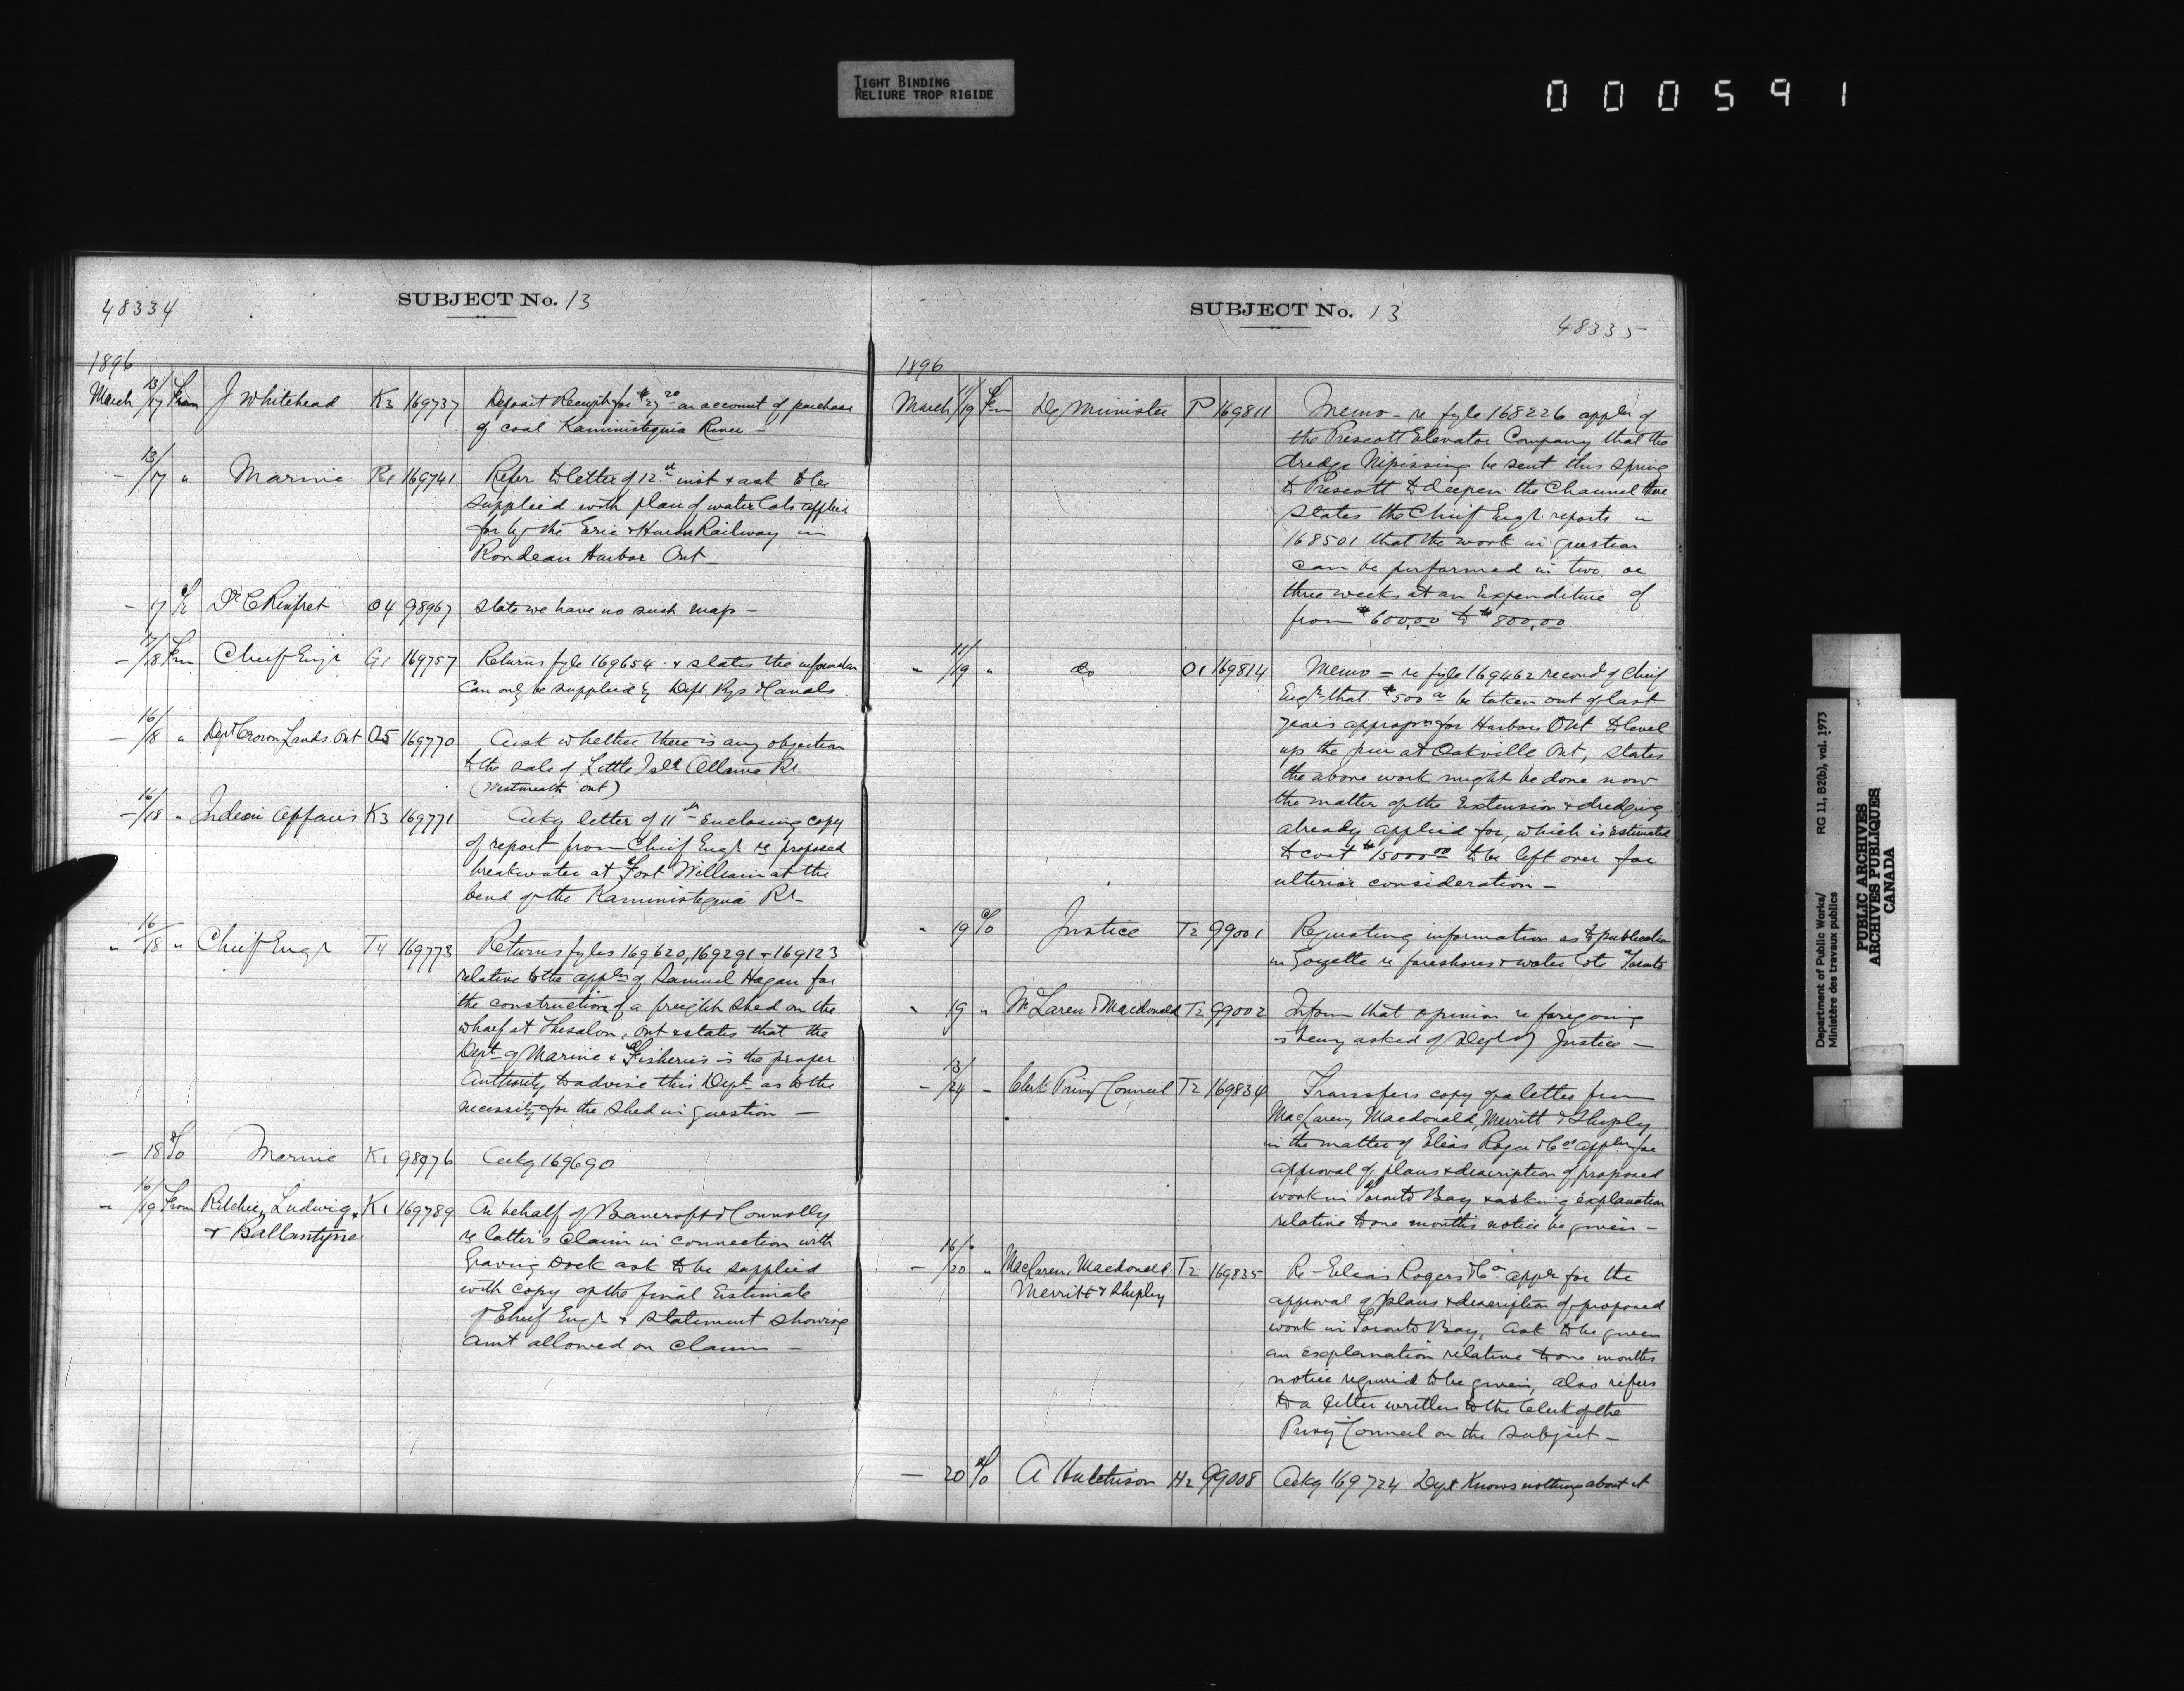 TIGHT BINDING
RELIURE TROP RIGIDE
000591
48334
SUBJECT No. 13
1896
March 13/17 From J Whitehead K3 169737 Deposit Receipt for $23.20 on account of purchase
of coal Kaministiquia River –
– 13/17 " Marine R1 169741 Refer to letter of 12th inst & ask to be
supplied with plan of water lots applied
for by the Erie & Huron Railway in
Rondeau Harbor Ont –
– 17 To Dr C Rinfret O4 98967 State we have no such map –
– 17/18 From Chief Engr G1 169757 Returns fyle 169654 & states the information
can only be supplied by Dept Rys & Canals
– 16/18 " Dept Crown Lands Ont O5 169770 Ask whether there is any objection
to the sale of Little Isld Ottawa Rr.
(Westmeath Ont)
– 16/18 " Indian Affairs K3 169771 Ackg letter of 11th Enclosing copy
of report from Chief Engr re proposed
breakwater at Fort William at the
bend of the Kaministiquia Rr –
" 16/18 " Chief Engr T4 169773 Returns fyles 169620, 169291 & 169123
relative to the appln of Samuel Hagan for
the construction of a freight shed on the
wharf at Thesalon, Ont & states that the
Dept of Marine & Fisheries is the proper
Authority to advise this Dept as to the
necessity for the shed in question –
– 18 To Marine K1 98976 Ackg 169690
– 16/19 From Ritchie, Ludwig K1 169789 On behalf of Bancroft & Connolly
& Ballantyne re latter's claim in connection with
Graving Dock ask to be supplied
with copy of the final Estimate
of Chief Engr & statement showing
amt allowed on claim –
SUBJECT No. 13
48335
1896
March 11/19 Fm Dy Minister P 169811 Memo – re fyle 168226 appln of
the Prescott Elevator Company that the
dredge Nipissing be sent this spring
to Prescott to deepen the Channel there
states the Chief Engr reports in
168501 that the work in question
can be performed in two or
three weeks at an Expenditure of
from $600.00 to $800.00
" 11/19 " do O1 169814 Memo = re fyle 169462 recomd of Chief
Engr that $500 be taken out of last
year's appropn for Harbors Ont to level
up the pier at Oakville Ont, states
the above work might be done now
the matter of the Extension & dredging
already applied for, which is estimated
to cost $15000.00 to be left over for
ulterior consideration –
" 19 To Justice T2 99001 Requesting information as to publication
in Gazette re foreshores & water lots Toronto
" 19 " McLaren & Macdonald T2 99002 Inform that opinion re foregoing
is being asked of Dept of Justice –
– 13/24 – Clerk Privy Council T2 169834 Transfers copy of a letter from
MacLaren, Macdonald, Merritt & Shepley
in the matter of Elias Roger & Co's appln for
approval of plans & description of proposed
work in Toronto Bay & asking explanation
relative to one months notice be given –
– 16/20 " MacLaren, Macdonald T2 169835 Re Elias Rogers & Co appln for the
Merritt & Shepley approval of plans & description of proposed
work in Toronto Bay, ask to be given
an explanation relative to one months
notice required to be given, also refers
to a letter written to the Clerk of the
Privy Council on the subject –
– 20 To A Hutchison H2 99008 Ackg 169724 Dept Knows nothing about it
Department of Public Works/
Ministère des travaux publics
RG 11, B2(b), vol. 1973
PUBLIC ARCHIVES
ARCHIVES PUBLIQUES
CANADA